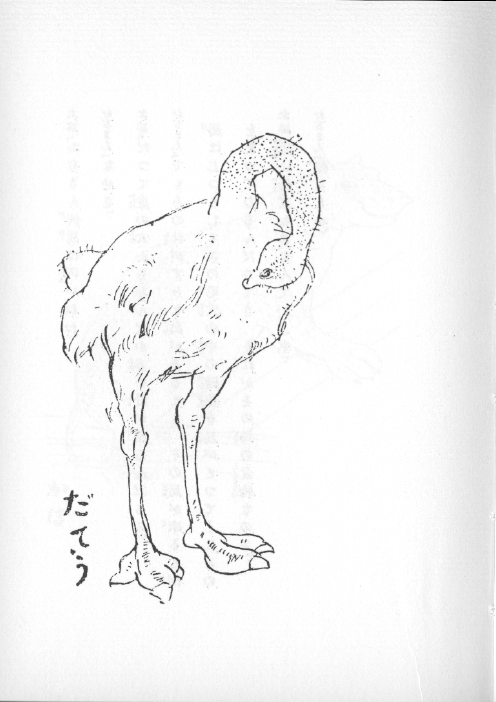 だてう